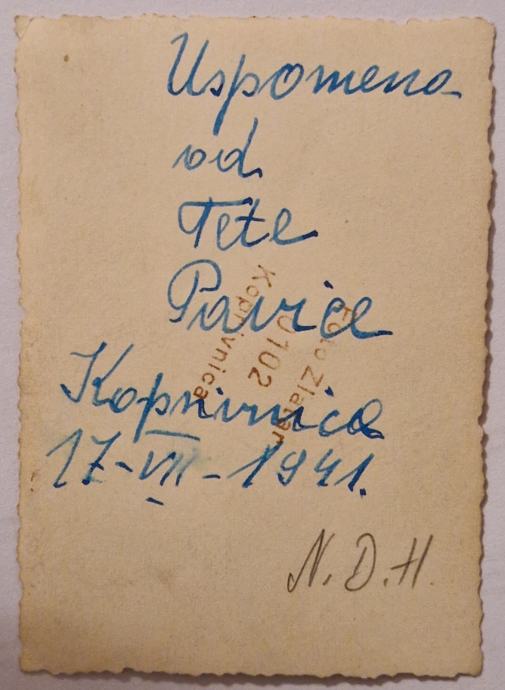 Uspomena
od
Tete
Pavice
Koprivnica
17-VII-1941.
N.D.H.
Foto Zlatar
0102
Koprivnica